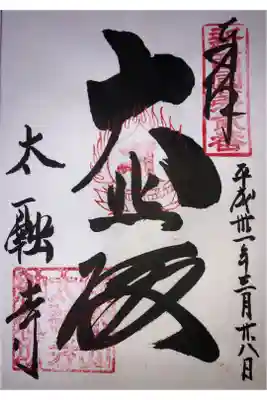 奉拝
平成卅一年三月廿八日
大悲殿
太融寺